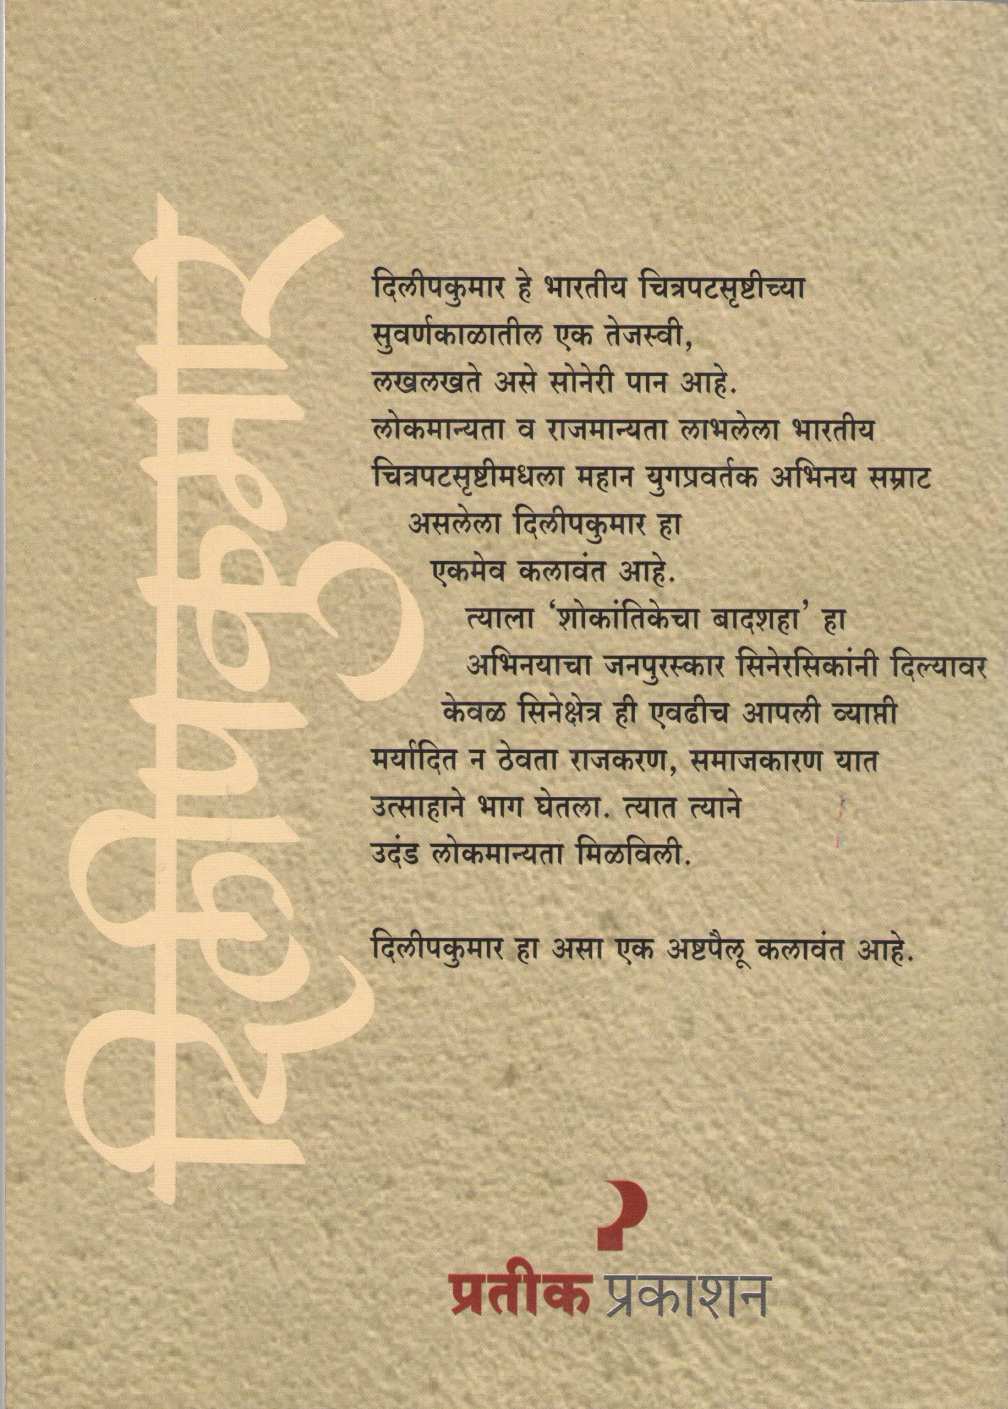 दिलीपकुमार
दिलीपकुमार हे भारतीय चित्रपटसृष्टीच्या
सुवर्णकाळातील एक तेजस्वी,
लखलखते असे सोनेरी पान आहे.
लोकमान्यता व राजमान्यता लाभलेला भारतीय
चित्रपटसृष्टीमधला महान युगप्रवर्तक अभिनय सम्राट
असलेला दिलीपकुमार हा
एकमेव कलावंत आहे.
त्याला ‘शोकांतिकेचा बादशहा’ हा
अभिनयाचा जनपुरस्कार सिनेरसिकांनी दिल्यावर
केवळ सिनेक्षेत्र ही एवढीच आपली व्याप्ती
मर्यादित न ठेवता राजकरण, समाजकारण यात
उत्साहाने भाग घेतला. त्यात त्याने
उदंड लोकमान्यता मिळविली.
दिलीपकुमार हा असा एक अष्टपैलू कलावंत आहे.
प्रतीक प्रकाशन